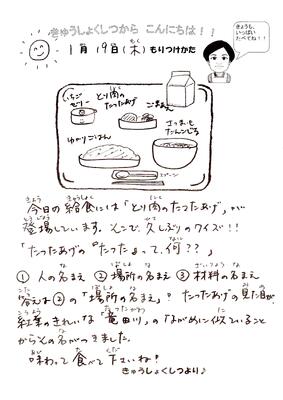 きゅうしょくしつから こんにちは！！
きょうも、
いっぱい
たべてね！！
1月19日（木）もりつけかた
いちご
ゼリー
とり肉の
たつたあげ
ごまあえ
さつまいも
たんこじる
ゆかりごはん
スプーン
今日の給食には「とり肉のたつたあげ」が
登場しています。そこで、久しぶりのクイズ！！
「たつたあげの『たつた』って、何？？」
① 人の名まえ ② 場所の名まえ ③ 材料の名まえ
答えは②の「場所の名まえ」。たつたあげの見た目が、
紅葉のきれいな「竜田川」のながめに似ていること
からその名がつきました。
味わって食べて下さいね！
きゅうしょくしつより♪